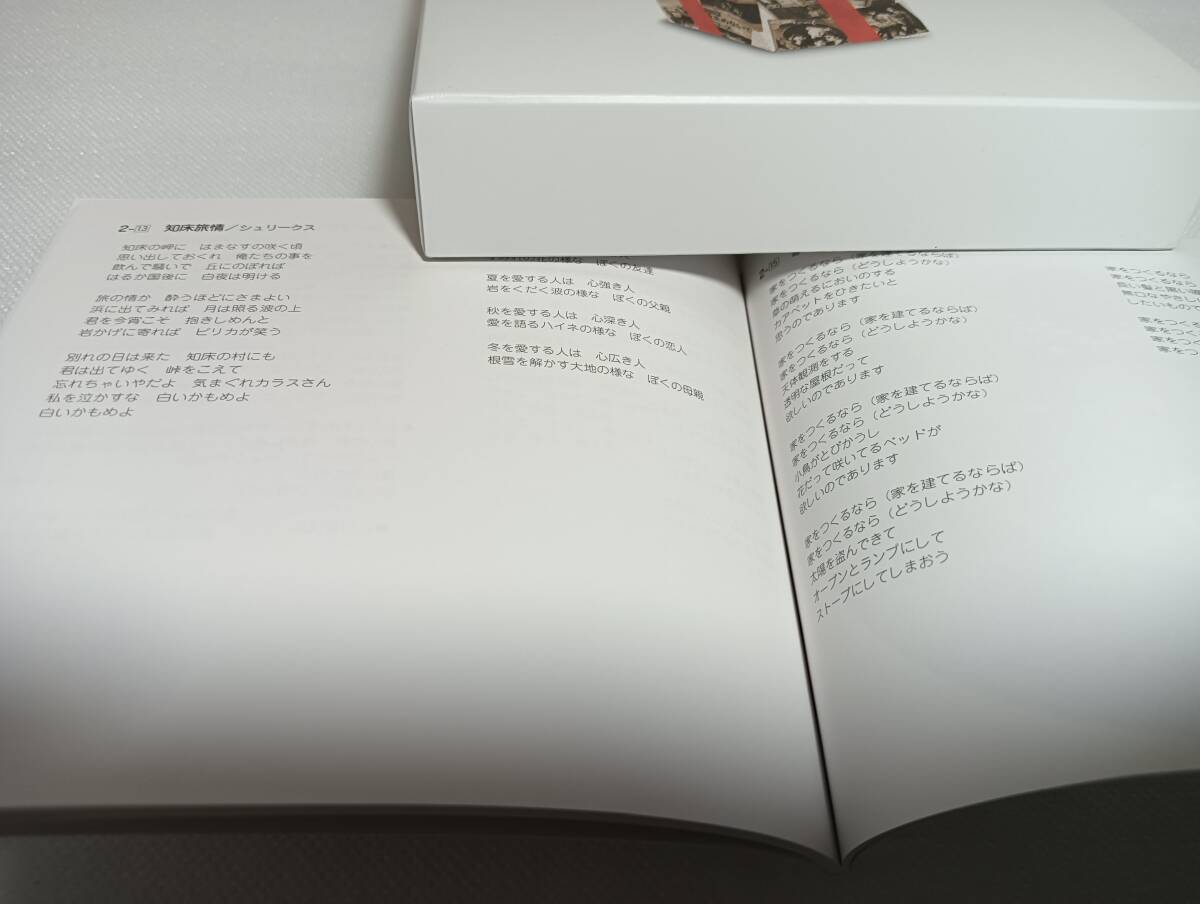 2-13 知床旅情/シュリークス
知床の岬に はまなすの咲く頃
思い出しておくれ 俺たちの事を
飲んで騒いで 丘にのぼれば
はるか国後に 白夜は明ける
旅の情か 酔うほどにさまよい
浜に出てみれば 月は照る波の上
君を今宵こそ 抱きしめんと
岩かげに寄れば ピリカが笑う
別れの日は来た 知床の村にも
君は出てゆく 峠をこえて
忘れちゃいやだよ 気まぐれカラスさん
私を泣かすな 白いかもめよ
白いかもめよ
ぼくの友達
夏を愛する人は 心強き人
岩をくだく波の様な ぼくの父親
秋を愛する人は 心深き人
愛を語るハイネの様な ぼくの恋人
冬を愛する人は 心広き人
根雪を解かす大地の様な ぼくの母親
2-15
家をつくるなら(家を建てるならば)
家をつくるなら(どうしようかな)
草の萌えるにおいのする
カアペットをひきたいと
思うのであります
家をつくるなら(家を建てるならば)
家をつくるなら(どうしようかな)
天体観測をする
透明な屋根だって
欲しいのであります
家をつくるなら(家を建てるならば)
家をつくるなら(どうしようかな)
小鳥がとびかうし
花だって咲いてるベッドが
欲しいのであります
家をつくるなら(家を建てるならば)
家をつくるなら(どうしようかな)
太陽を盗んできて
オーブンとランプにして
ストーブにしてしまおう
家をつくるなら
家をつくるなら
長い髪と黒い
無口なやさし
したいもので
家をつく
家をつく
家をつく
家をつ